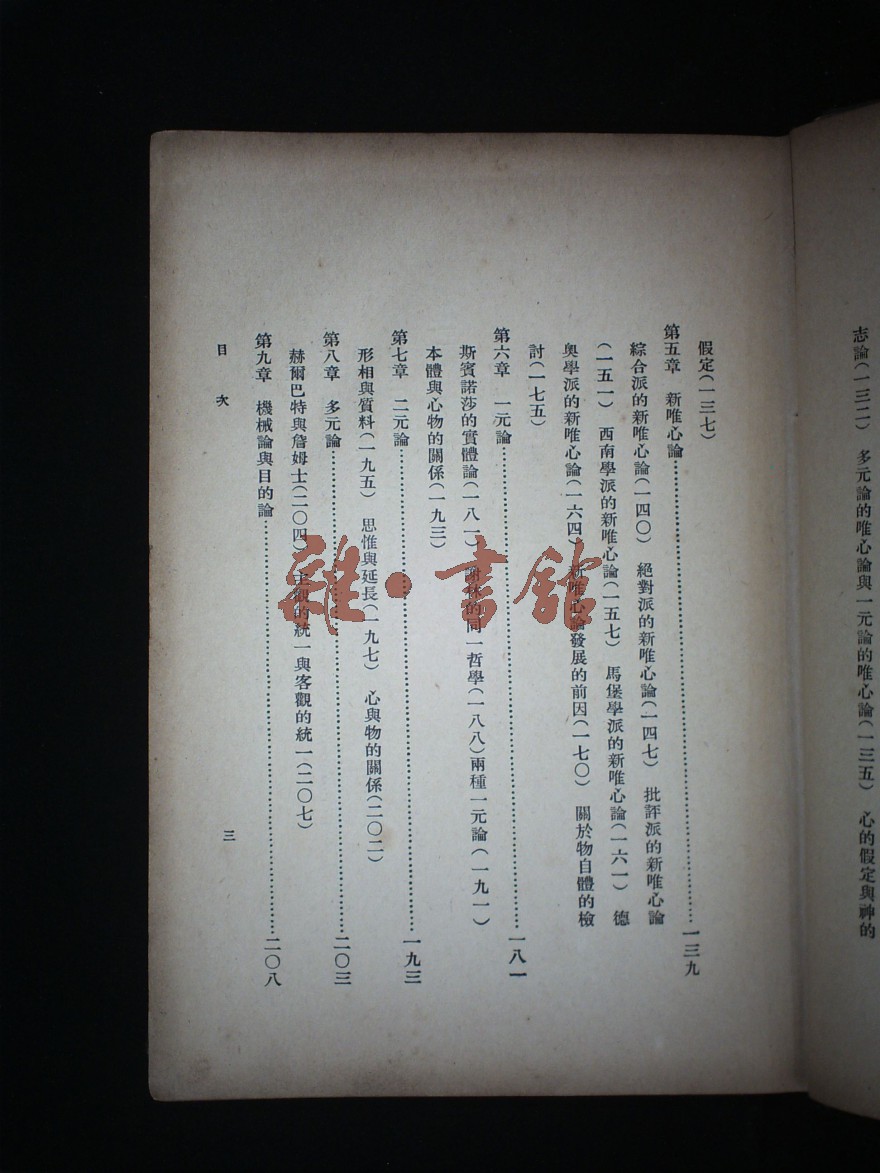 志論(一三二)　多元論的唯心論與一元論的唯心論(一三五)　心的假定與神的
假定(一三七)
第五章　新唯心論…………一三九
綜合派的新唯心論(一四〇)　絕對派的新唯心論(一四七)　批評派的新唯心論
(一五一)　西南學派的新唯心論(一五七)　馬堡學派的新唯心論(一六一)　德
奧學派的新唯心論(一六四)　新唯心論發展的前因(一七〇)　關於物自體的檢
討(一七五)
第六章　一元論…………一八一
斯賓諾莎的實體論(一八一)　謝林的同一哲學(一八八)兩種一元論(一九一)
本體與心物的關係(一九三)
第七章　二元論…………一九三
形相與質料(一九五)　思惟與延長(一九七)　心與物的關係(二〇二)
第八章　多元論…………二〇三
赫爾巴特與詹姆士(二〇四)　主觀的統一與客觀的統一(二〇七)
第九章　機械論與目的論…………二〇八
目次　三
雜·書館